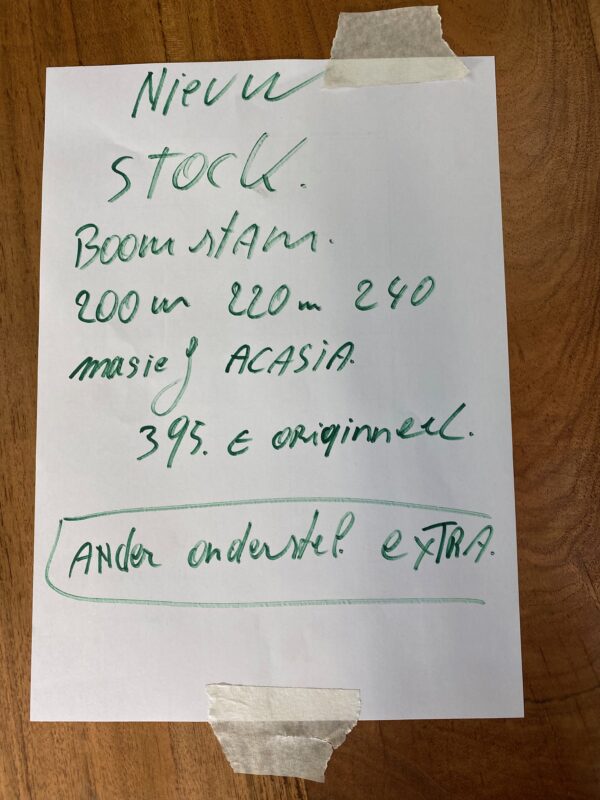 Nieuw
STOCK.
BOOMSTAM.
200m 220m 240
masief ACASiA.
395. € ORigiNNeel.
ANder onderstel. eXTRA.